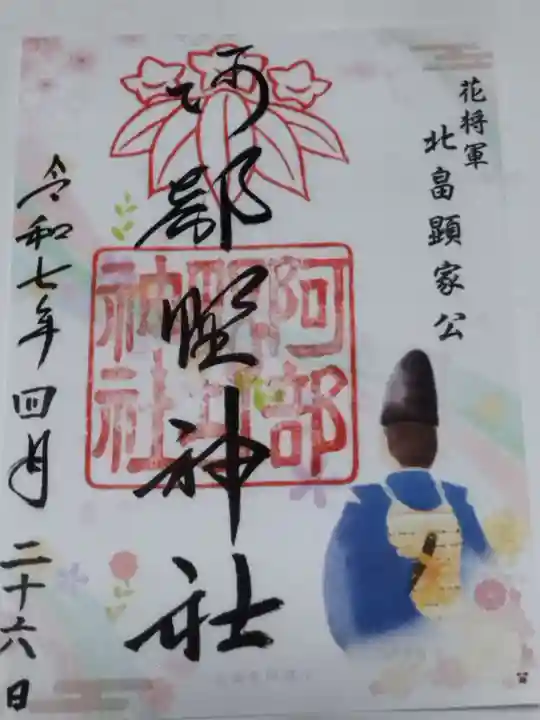 花将軍
北畠顕家公
阿部野神社
阿部野神社
令和七年四月二十六日